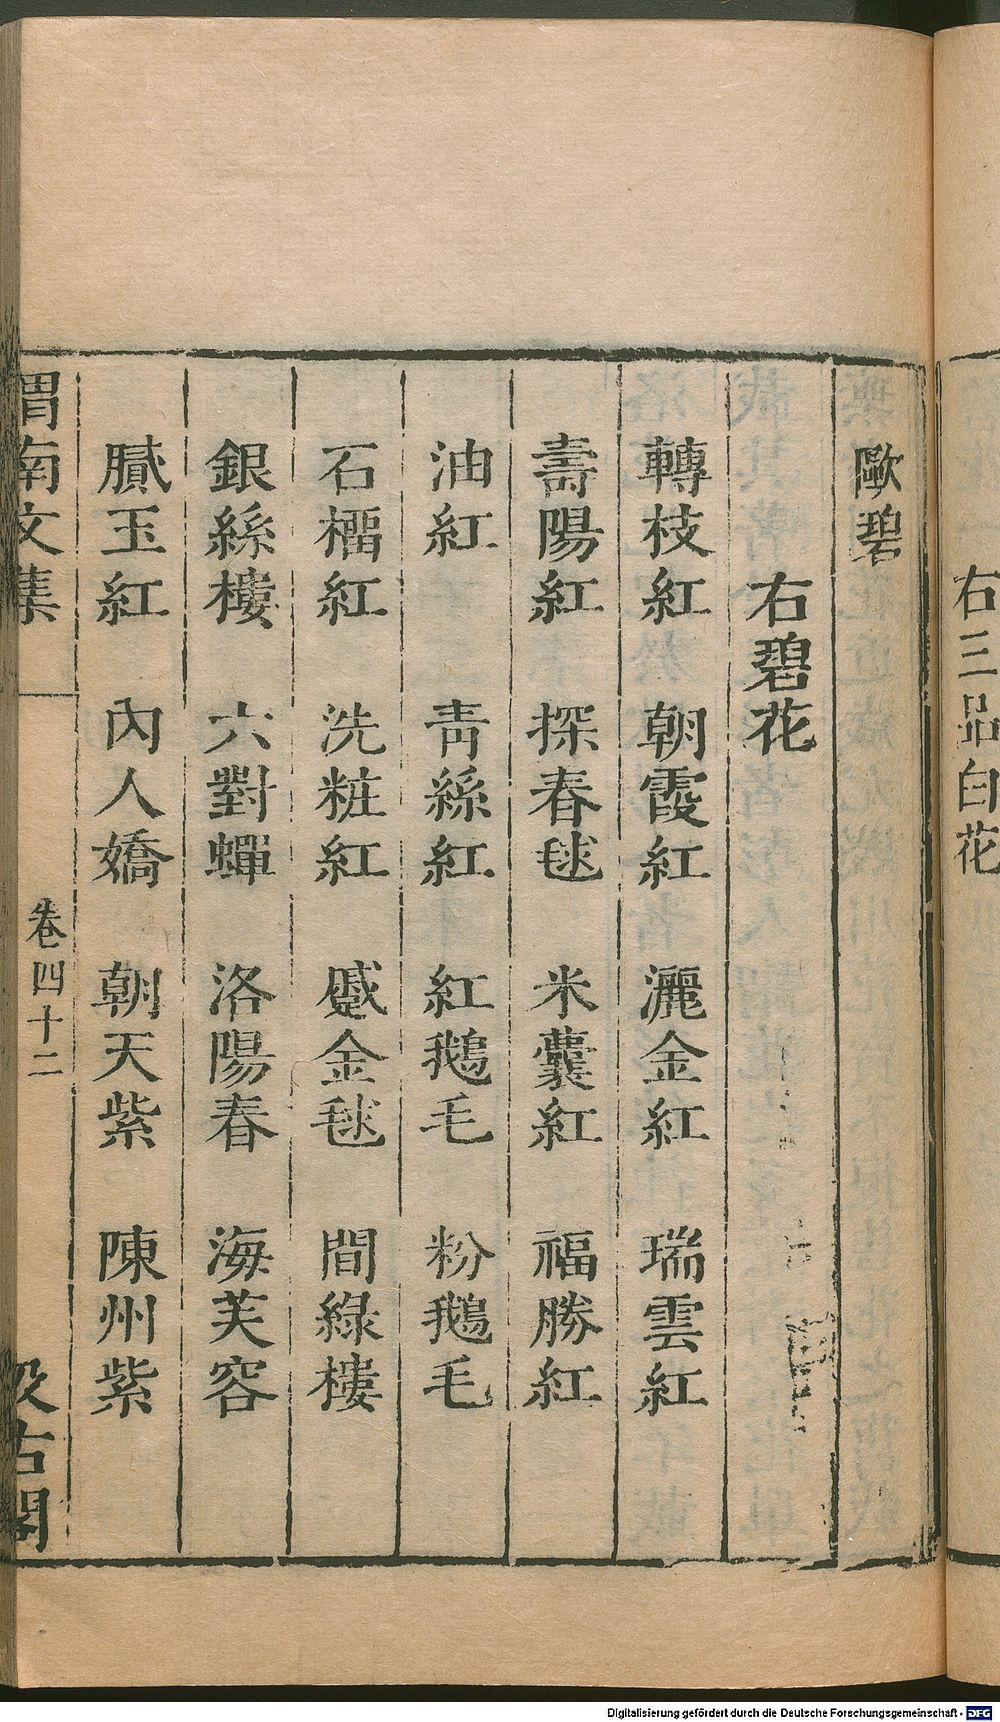 右三品白花
歐碧
右碧花
轉枝紅　朝霞紅　灑金紅　瑞雲紅
壽陽紅　探春毬　米囊紅　福勝紅
油紅　青絲紅　紅鵝毛　粉鵝毛
石榴紅　洗粧紅　蹙金毬　間綠樓
銀絲樓　六對蟬　洛陽春　海芙容
膩玉紅　內人嬌　朝天紫　陳州紫
渭南文集　卷四十二　汲古閣
Digitalisierung gefördert durch die Deutsche Forschungsgemeinschaft - DFG